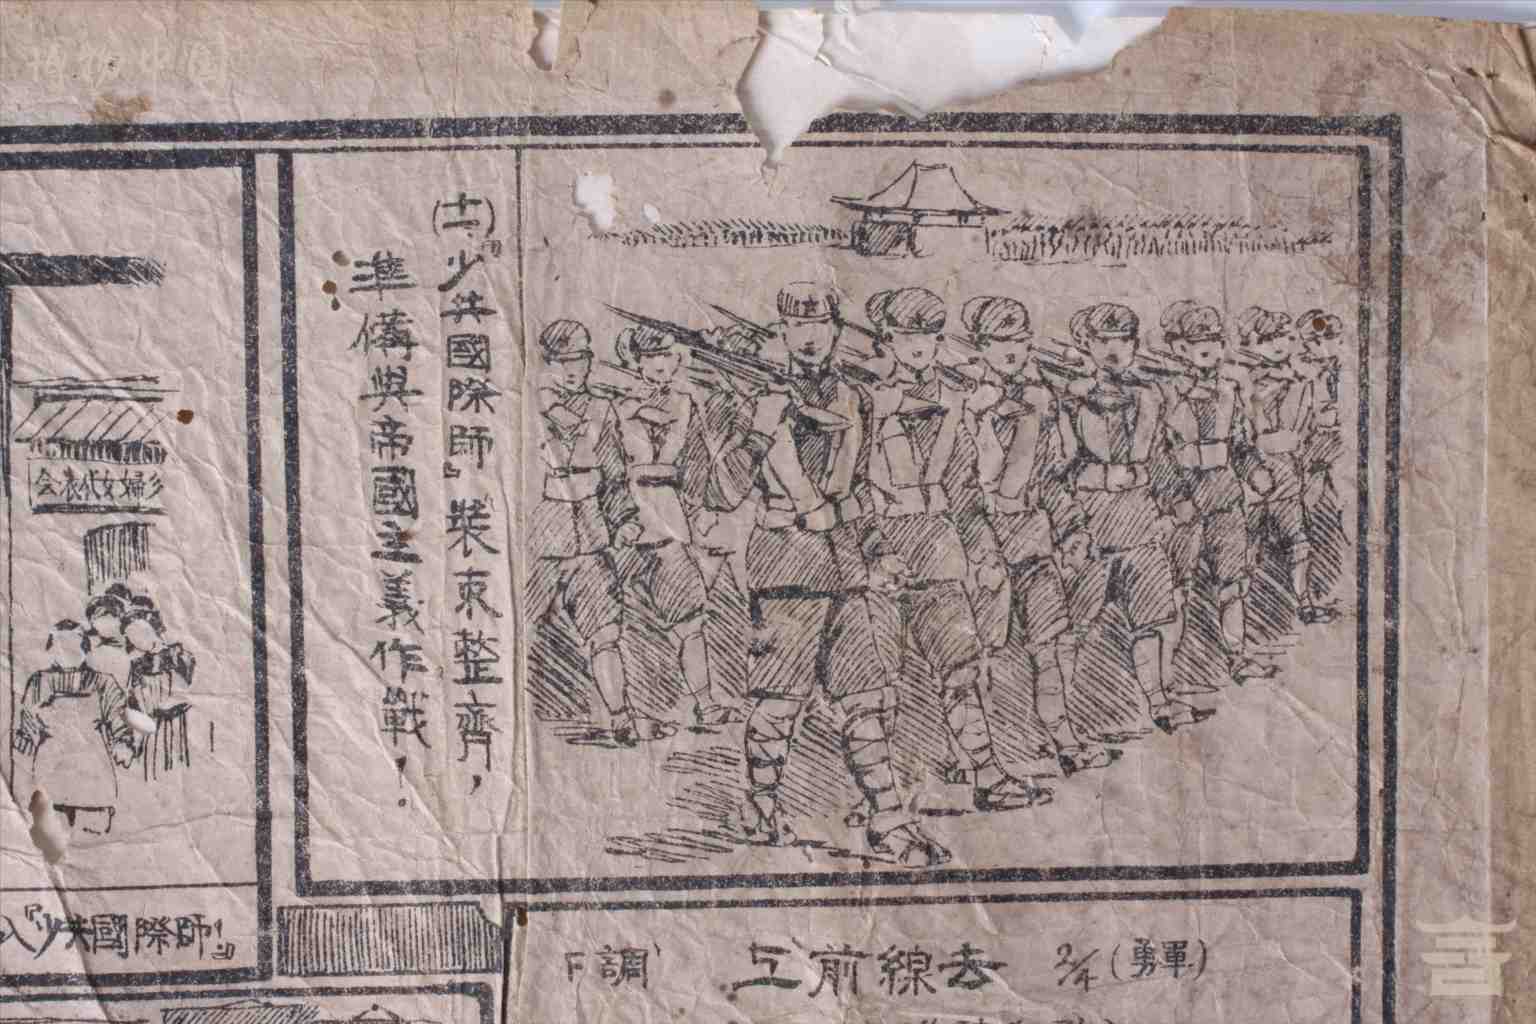 (十二)『少共國際師』裝束整齊，
準備與帝國主義作戰！
婦女代表会
『少共國際師』
F調 上前線去 2/4 (勇軍)
博物中国